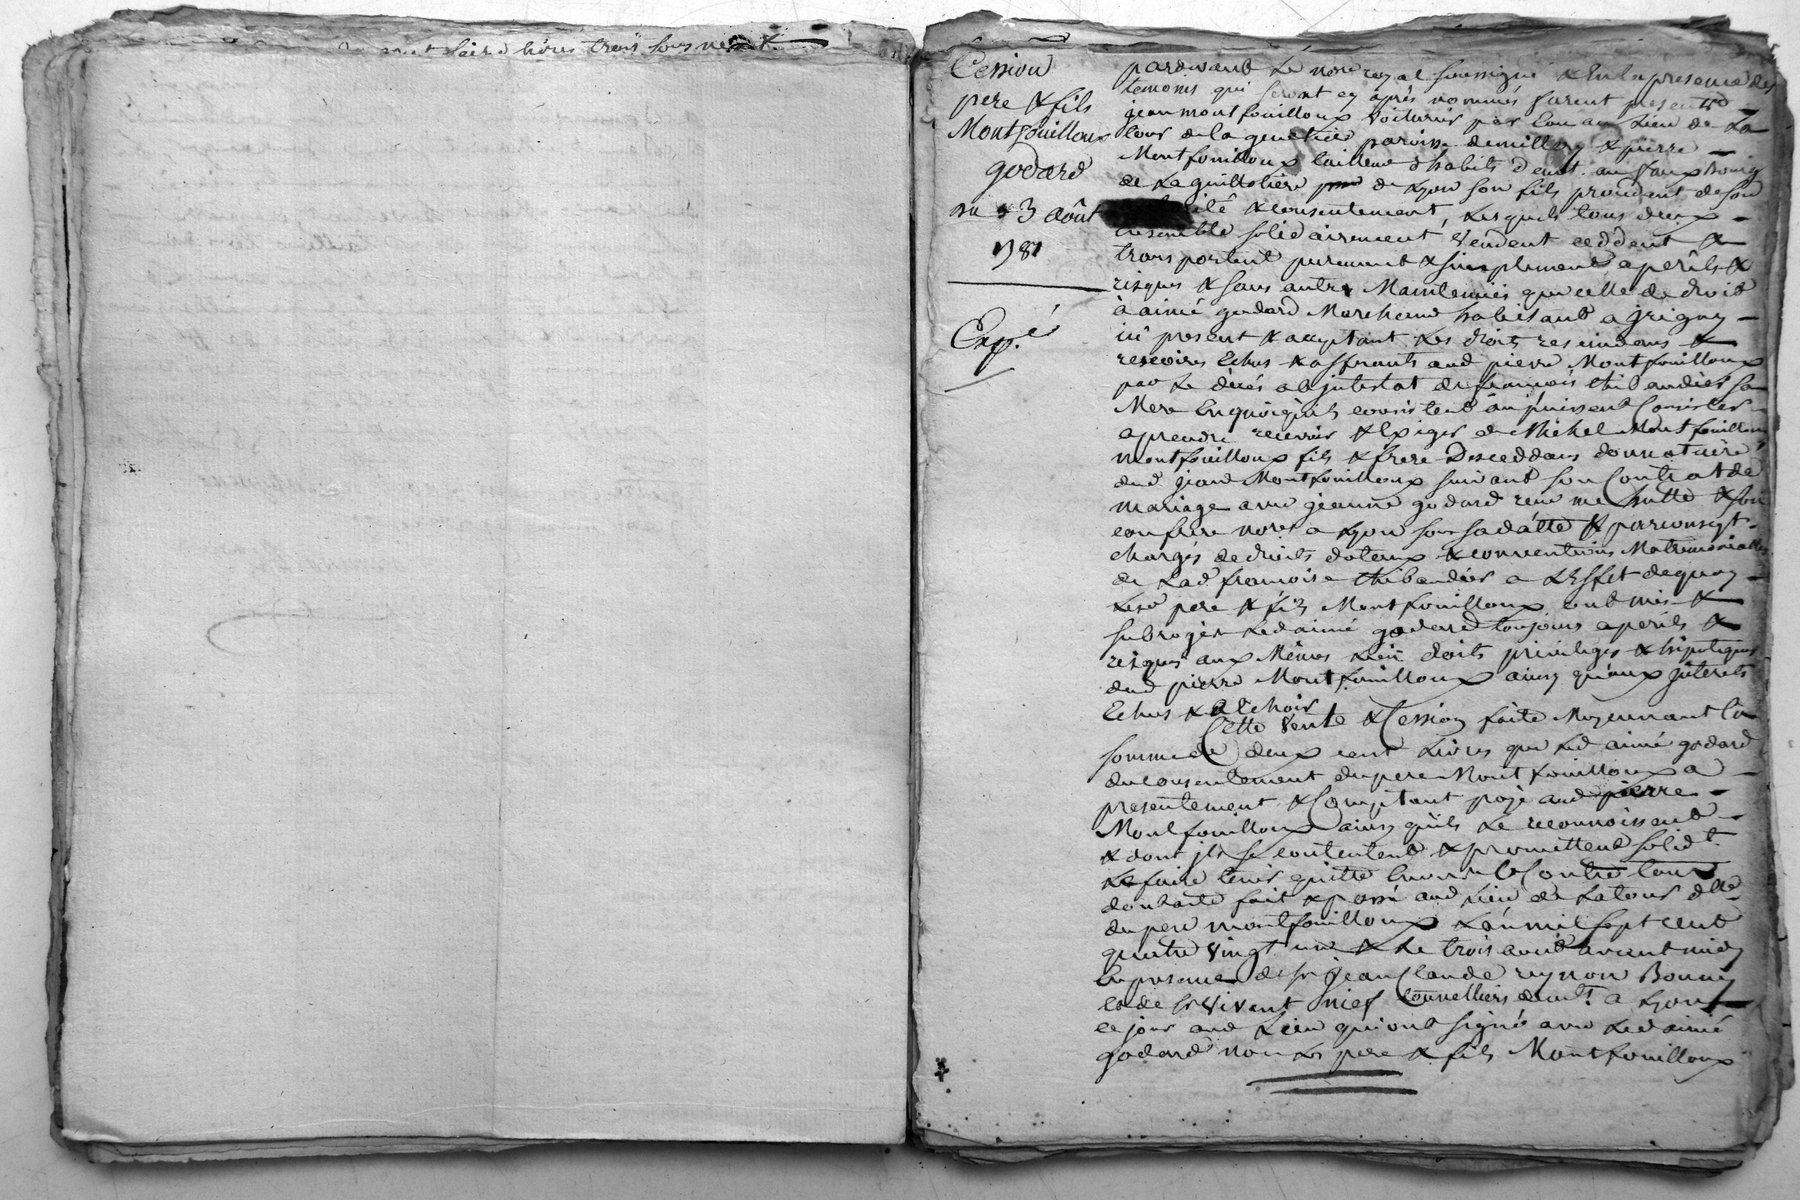 livres trois sous
Cession
pere & fils
Montfouilloux
godard
du 3 août
1781
Exp.é
pardevant Le nore royal soussigné & En la presence des
temoins qui seront cy après nommés furent presents
jean montfouilloux voiturier par Eau au Lieu de La
tour de la paroisse de millery & pierre
Montfouilloux tailleur d'habits demt. au fauxbourg
de La guillotière de Lyon son fils procedant de son
& consentement, Lesquels tous deux
Ensemble solidairement vendent ceddent &
transportent purement & simplement a perils &
risques & sans autre Maintenüe que celle de droit
à aimé godard Marchand habitant a grigny
ici present & acceptant Les droits rescindans &
rescisoires Echus & afférants aud pierre Montfouilloux
par Le décés ab jntestat de françoise thibaudier sa
Mere En quoiqu'ils consistent ou puissent Consister
a prendre recevoir & Exiger de Michel Montfouilloux
montfouilloux fils & frere Desceddans donnataire
dud jean Montfouilloux suivant son Contrat de
mariage avec jeanne godard reçu me & son
confrere nores a Lyon sous sa datte & par conseqt.
chargés de droits dotaux & conventions Matrimonialles
de Lad françoise thibaudier a L'Effet de quoy
Lesd pere & fils Montfouilloux ont mis &
subrogés Led aimé godard toujours a perils &
risques aux Mêmes Lieu droits privileges & hipoteques
dud pierre Montfouilloux ainsy qu'aux jnterets
Echus & a Echoir
Cette vente & Cession faite Moyennant La
somme de deux cent Livres que Led aimé godard
du consentement du pere Montfouilloux a
presentement & Comptant payé aud pierre
Montfouilloux ainsy qu'ils Le reconnoissent
& dont jls se contentent & promettent solidt.
Le faire tenir quitte Envers & Contre tous
dont acte fait & passé aud Lieu de Latour
du pere montfouilloux L'an mil sept cent
quatre vingt un & Le trois aout avant midy
En presence de sr jean Claude reynon
& de sr vivant nief tonnelliers demts. a Lyon
ce jour aud Lieu qui ont signé avec Led aimé
godard non Les pere & fils Montfouilloux